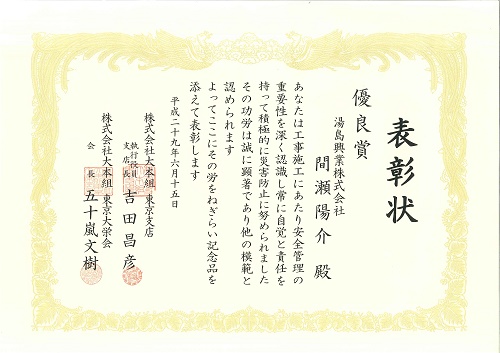 表彰状
優良賞
湯島興業株式会社
間瀬陽介 殿
あなたは工事施工にあたり安全管理の
重要性を深く認識し常に自覚と責任を
持って積極的に災害防止に努められました
その功労は誠に顕著であり他の模範と
認められます
よってここにその労をねぎらい記念品を
添えて表彰します
平成二十九年六月十五日
株式会社大本組 東京支店
執行役員
支店長 吉田昌彦
株式会社大本組 東京大栄会
会長 五十嵐文樹